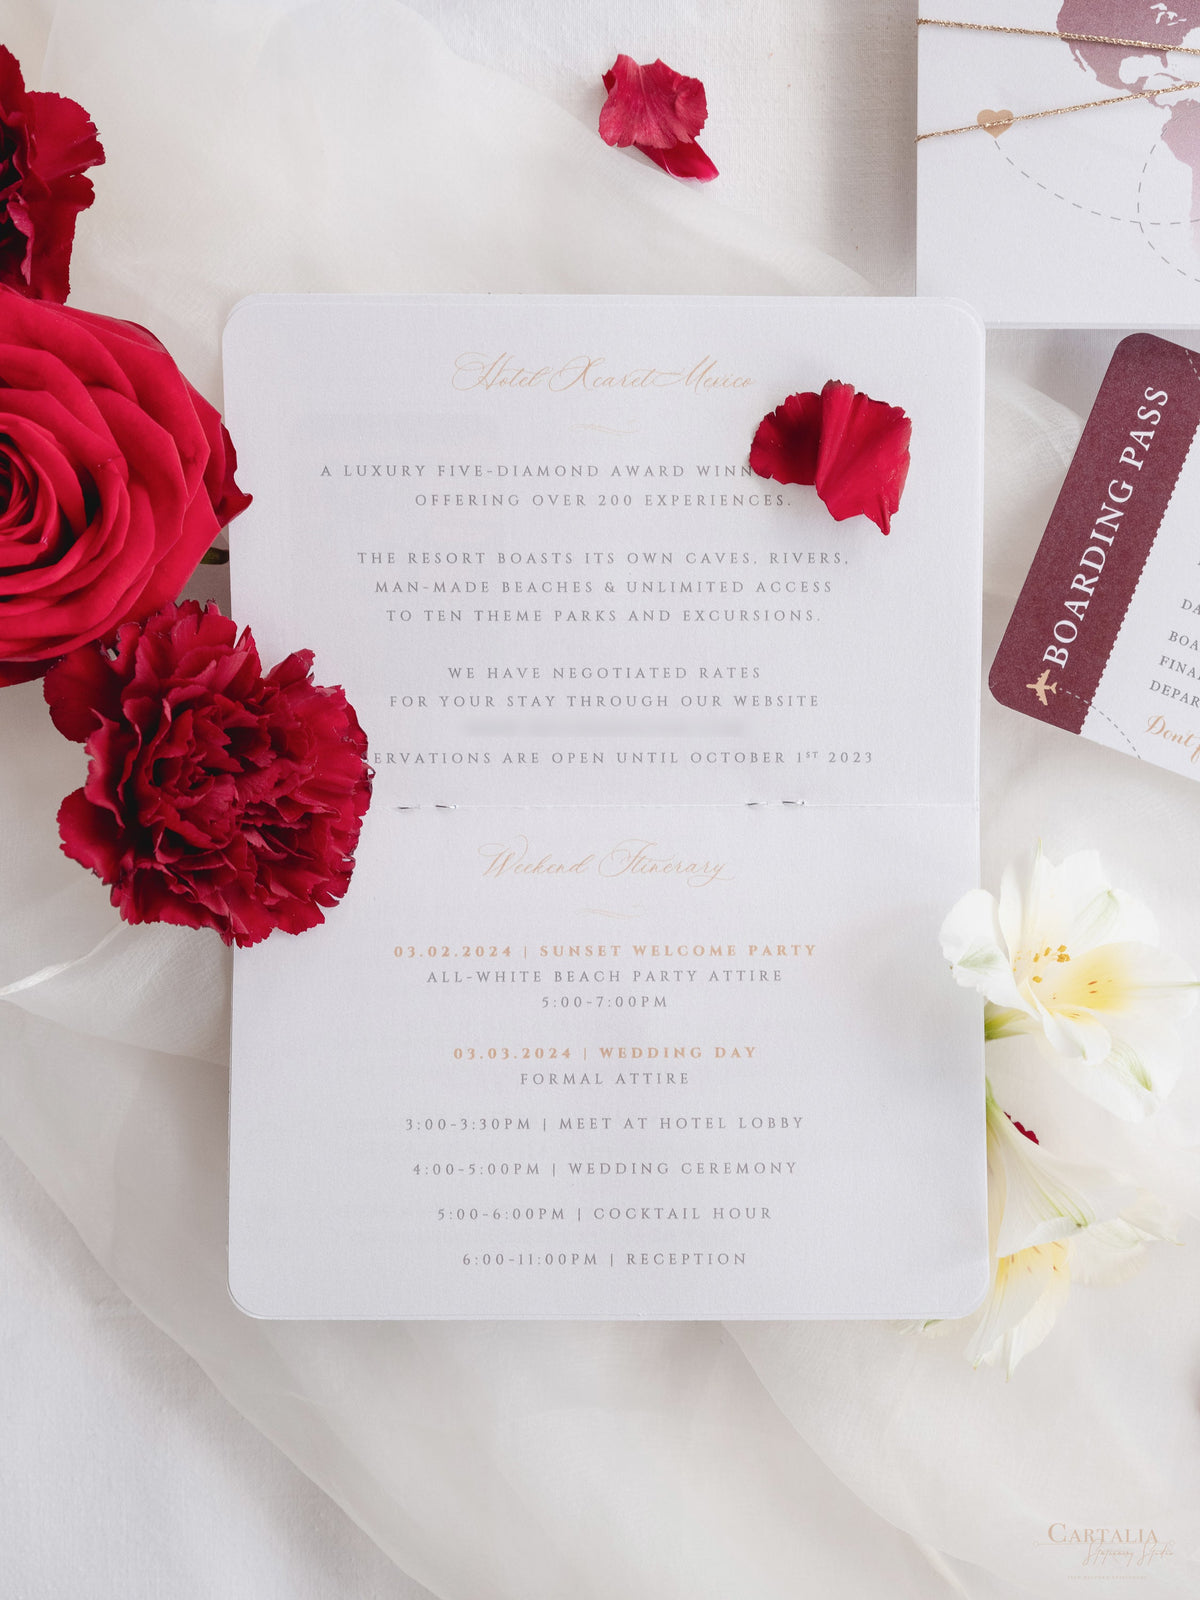 Hotel Xcaret Mexico
A LUXURY FIVE-DIAMOND AWARD
OFFERING OVER 200 EXPERIENCES.
THE RESORT BOASTS ITS OWN CAVES, RIVERS,
MAN-MADE BEACHES & UNLIMITED ACCESS
TO TEN THEME PARKS AND EXCURSIONS.
WE HAVE NEGOTIATED RATES
FOR YOUR STAY THROUGH OUR WEBSITE
ERVATIONS ARE OPEN UNTIL OCTOBER 1ST 2023
Weekend Itinerary
03.02.2024 | SUNSET WELCOME PARTY
ALL-WHITE BEACH PARTY ATTIRE
5:00-7:00PM
03.03.2024 | WEDDING DAY
FORMAL ATTIRE
3:00-3:30PM | MEET AT HOTEL LOBBY
4:00-5:00PM | WEDDING CEREMONY
5:00-6:00PM | COCKTAIL HOUR
6:00-11:00PM | RECEPTION
BOARDING PASS
DA
BOA
FINA
DEPAR
Dont
CARTALIA
Stationery Studio